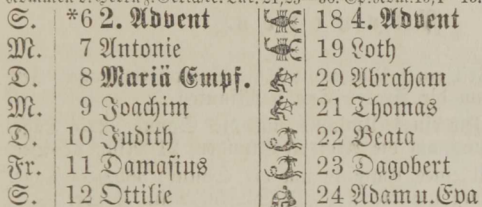 S. *6 2. Advent 18 4. Advent
M. 7 Antonie 19 Loth
D. 8 Mariä Empf. 20 Abraham
M. 9 Joachim 21 Thomas
D. 10 Judith 22 Beata
Fr. 11 Damasius 23 Dagobert
S. 12 Ottilie 24 Adam u. Eva